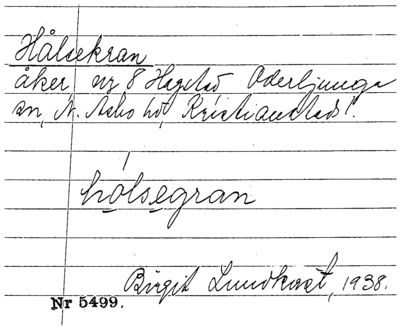 Hålsekran
åker nr 8 Hagstad Oderljunga
sn, N. Åsbo hd, Kristianstads l.
hólsegran
Birgit Lundkvist, 1938.
Nr 5499.